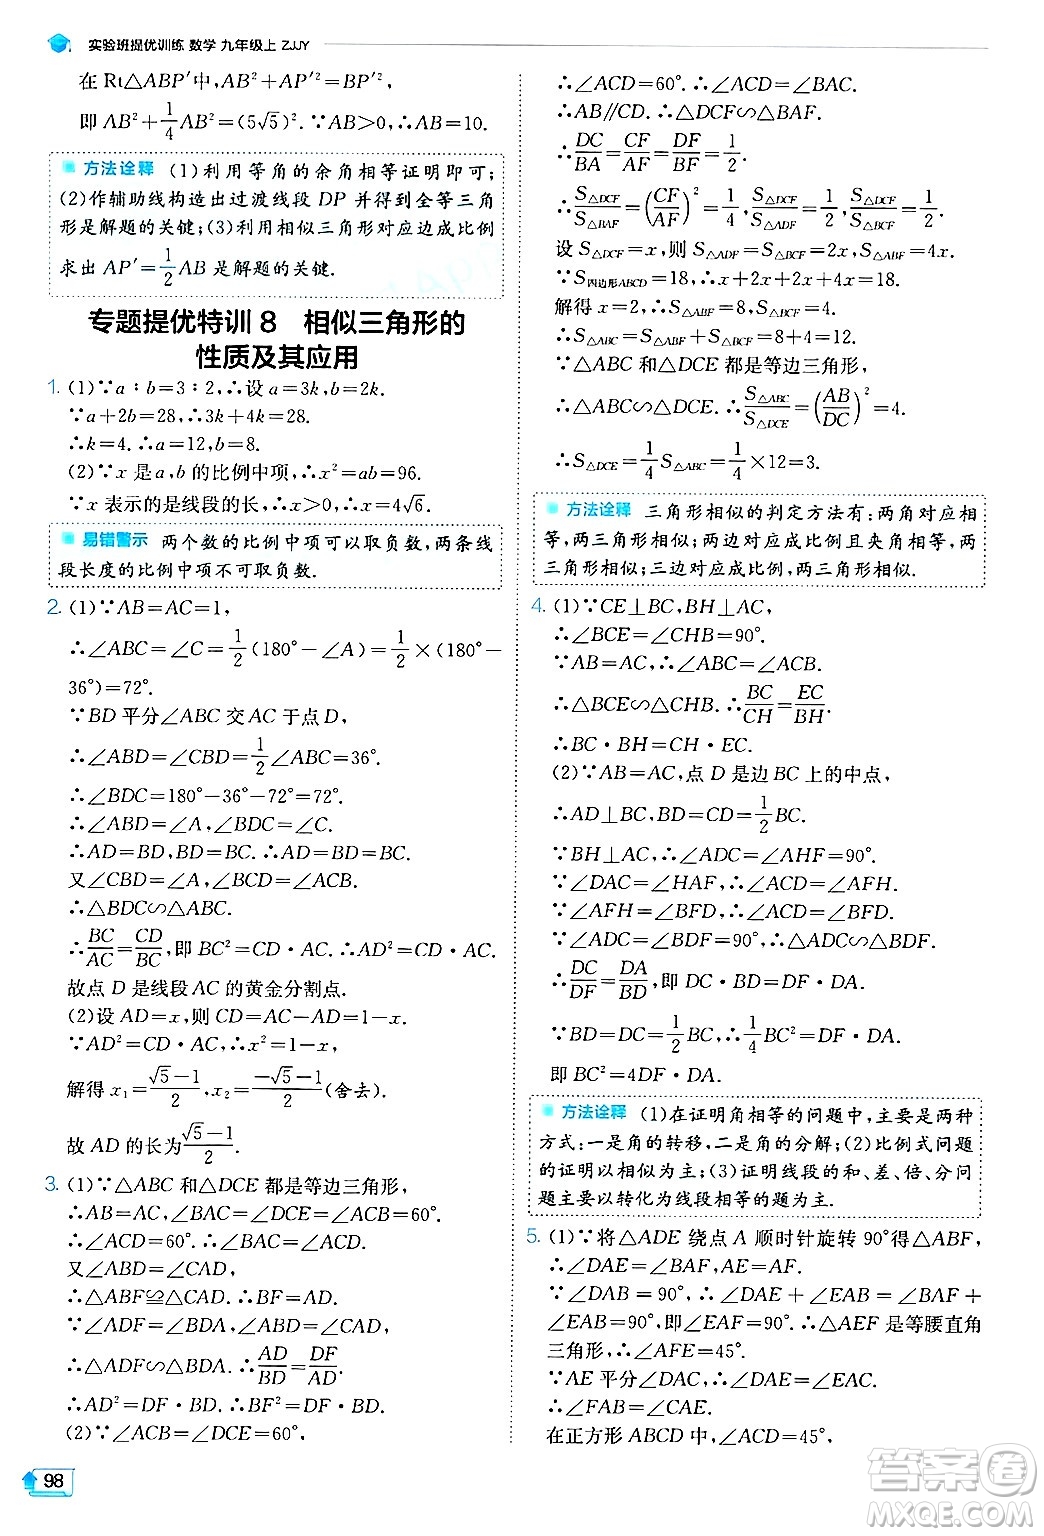 实验班提优训练 数学 九年级上 ZJJY
在 Rt△ABP′中,AB²+AP′²=BP′²,
即 AB²+1/4AB²=(5√5)².∵AB>0,∴AB=10.
方法诠释 (1)利用等角的余角相等证明即可;
(2)作辅助线构造出过渡线段 DP 并得到全等三角
形是解题的关键;(3)利用相似三角形对应边成比例
求出 AP′=1/2AB 是解题的关键.
专题提优特训 8 相似三角形的
性质及其应用
1. (1)∵a∶b=3∶2,∴设 a=3k,b=2k.
∵a+2b=28,∴3k+4k=28.
∴k=4.∴a=12,b=8.
(2)∵x 是a,b 的比例中项,∴x²=ab=96.
∵x 表示的是线段的长,∴x>0,∴x=4√6.
易错警示 两个数的比例中项可以取负数,两条线
段长度的比例中项不可取负数.
2. (1)∵AB=AC=1,
∴∠ABC=∠C=1/2(180°-∠A)=1/2×(180°-
36°)=72°.
∵BD 平分∠ABC 交 AC 于点 D,
∴∠ABD=∠CBD=1/2∠ABC=36°.
∴∠BDC=180°-36°-72°=72°.
∴∠ABD=∠A,∠BDC=∠C.
∴AD=BD,BD=BC.∴AD=BD=BC.
又∠CBD=∠A,∠BDC=∠ACB,
∴△BDC∽△ABC.
∴BC/AC=CD/BC,即 BC²=CD·AC.∴AD²=CD·AC.
故点 D 是线段 AC 的黄金分割点.
(2)设 AD=x,则 CD=AC-AD=1-x.
∵AD²=CD·AC,∴x²=1-x,
解得 x₁=(√5-1)/2,x₂=(-√5-1)/2(舍去).
故 AD 的长为(√5-1)/2.
3. (1)∵△ABC 和△DCE 都是等边三角形,
∴AB=AC,∠BAC=∠DCE=∠ACB=60°.
∴∠ACD=60°.∴∠BAC=∠ACD.
又∠ABD=∠CAD,
∴△ABF≌△CAD.∴BF=AD.
∵∠ADF=∠BDA,∠ABD=∠CAD,
∴△ADF∽△BDA.∴AD/BD=DF/AD.
∴AD²=DF·BD.∴BF²=DF·BD.
(2)∵∠ACB=∠DCE=60°,
98
∴∠ACD=60°.∴∠ACD=∠BAC.
∴AB∥CD.∴△DCF∽△BAF.
∴DC/BA=CF/AF=DF/BF=1/2.
∴S△DCF/S△BAF=(CF/AF)²=1/4,S△DCF/S△ADF=1/2,S△DCF/S△BCF=1/2.
设 S△DCF=x,则 S△ADF=S△BCF=2x,S△ABF=4x.
∵S四边形ABCD=18,∴x+2x+2x+4x=18.
解得 x=2,∴S△ABF=8,S△BCF=4.
∴S△ABC=S△ABF+S△BCF=8+4=12.
∵△ABC 和△DCE 都是等边三角形,
∴△ABC∽△DCE.∴S△ABC/S△DCE=(AB/DC)²=4.
∴S△DCE=1/4S△ABC=1/4×12=3.
方法诠释 三角形相似的判定方法有:两角对应相
等,两三角形相似;两边对应成比例且夹角相等,两
三角形相似;三边对应成比例,两三角形相似.
4. (1)∵CE⊥BC,BH⊥AC,
∴∠BCE=∠CHB=90°.
∵AB=AC,∴∠ABC=∠ACB.
∴△BCE∽△CHB.∴BC/CH=EC/BH.
∴BC·BH=CH·EC.
(2)∵AB=AC,点 D 是边 BC 上的中点,
∴AD⊥BC,BD=CD=1/2BC.
∵BH⊥AC,∴∠ADC=∠AHF=90°.
∵∠DAC=∠HAF,∴∠ACD=∠AFH.
∵∠AFH=∠BFD,∴∠ACD=∠BFD.
∵∠ADC=∠BDF=90°,∴△ADC∽△BDF.
∴DC/DF=DA/BD,即 BD·DC=DF·DA.
∵BD=DC=1/2BC,∴1/4BC²=DF·DA.
即 BC²=4DF·DA.
方法诠释 (1)在证明角相等的问题中,主要是两种
方式:一是角的转移,二是角的分解;(2)比例式问题
的证明以相似为主;(3)证明线段的和、差、倍、分问
题主要以转化为线段相等的题为主.
5. (1)∵将△ADE 绕点 A 顺时针旋转 90°得△ABF,
∴∠DAE=∠BAF,AE=AF.
∵∠DAB=90°,∴∠DAE+∠EAB=∠BAF+
∠EAB=90°,即∠EAF=90°.∴△AEF 是等腰直角
三角形,∴∠AFE=45°.
∵AE 平分∠DAC,∴∠DAE=∠CAE.
∴∠FAB=∠CAE.
在正方形 ABCD 中,∠ACD=45°,
答案圈
MXQE.COM